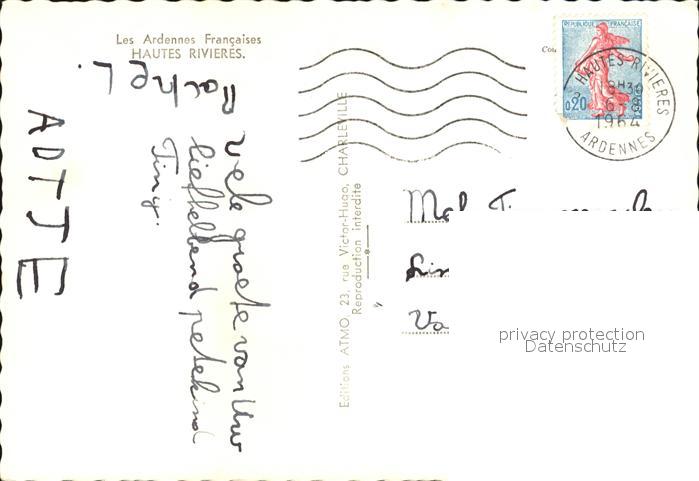 Les Ardennes Françaises
HAUTES RIVIERES.
Rachel.
ADTJE
vele groete van Uw
liefhebbend petekind
Tiny.
Editions ATMO, 23, rue Victor-Hugo, CHARLEVILLE
Reproduction interdite
REPUBLIQUE FRANÇAISE
0,20
HAUTES-RIVIERES
18H30
6-8
1964
ARDENNES
privacy protection
Datenschutz